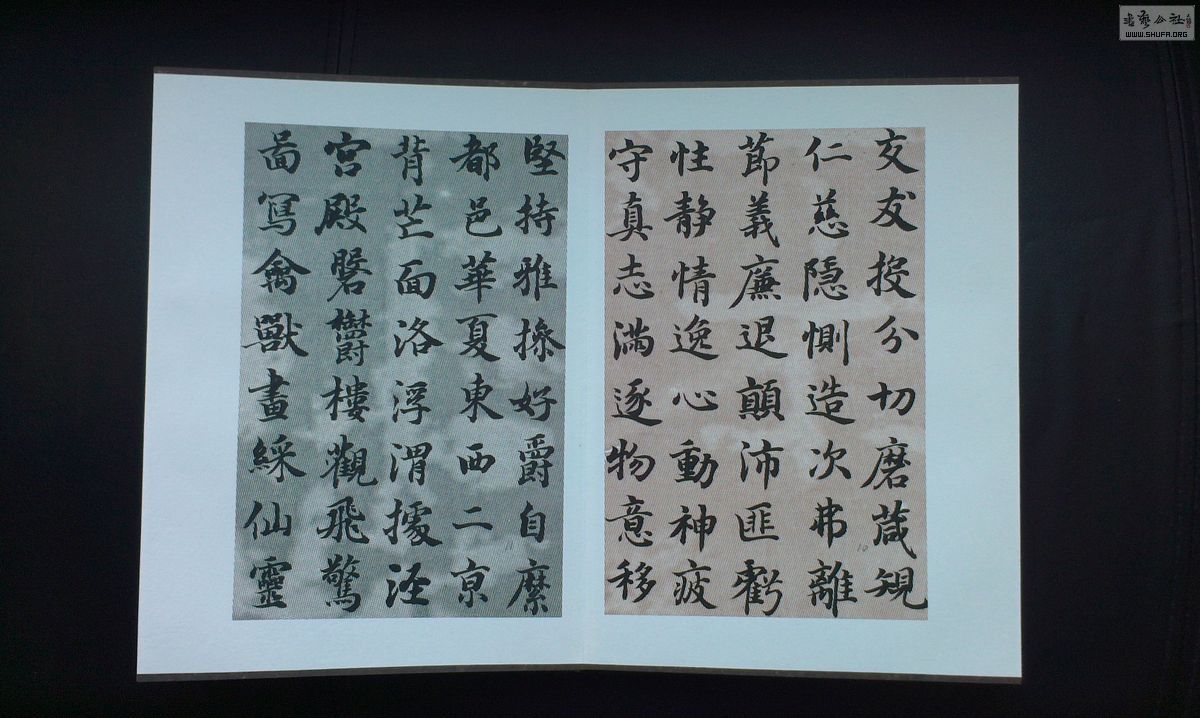 交友投分切磨葴規
仁慈隱惻造次弗離
節義廉退顛沛匪虧
性靜情逸心動神疲
守真志滿逐物意移
堅持雅操好爵自縻
都邑華夏東西二京
背芒面洛浮渭據涇
宮殿磐鬱樓觀飛驚
啚寫禽獸畫綵仙靈
10
11
書藝公社
WWW.SHUFA.ORG